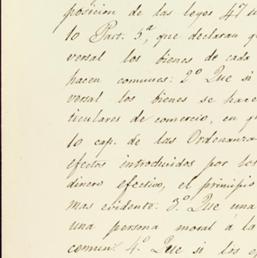 posicion de las leyes 47 u
lo Part. 5ª, que declaran q
versal los bienes de cada
hacen comunes: 2º Que si
versal los bienes se hace
ticulares de comercio, en qu
lo cap. de las Ordenanza
efectos introducidos por los
dinero efectivo, el principio
mas evidente: 3º Que una
una persona moral á la
comun: 4º Que si los ef